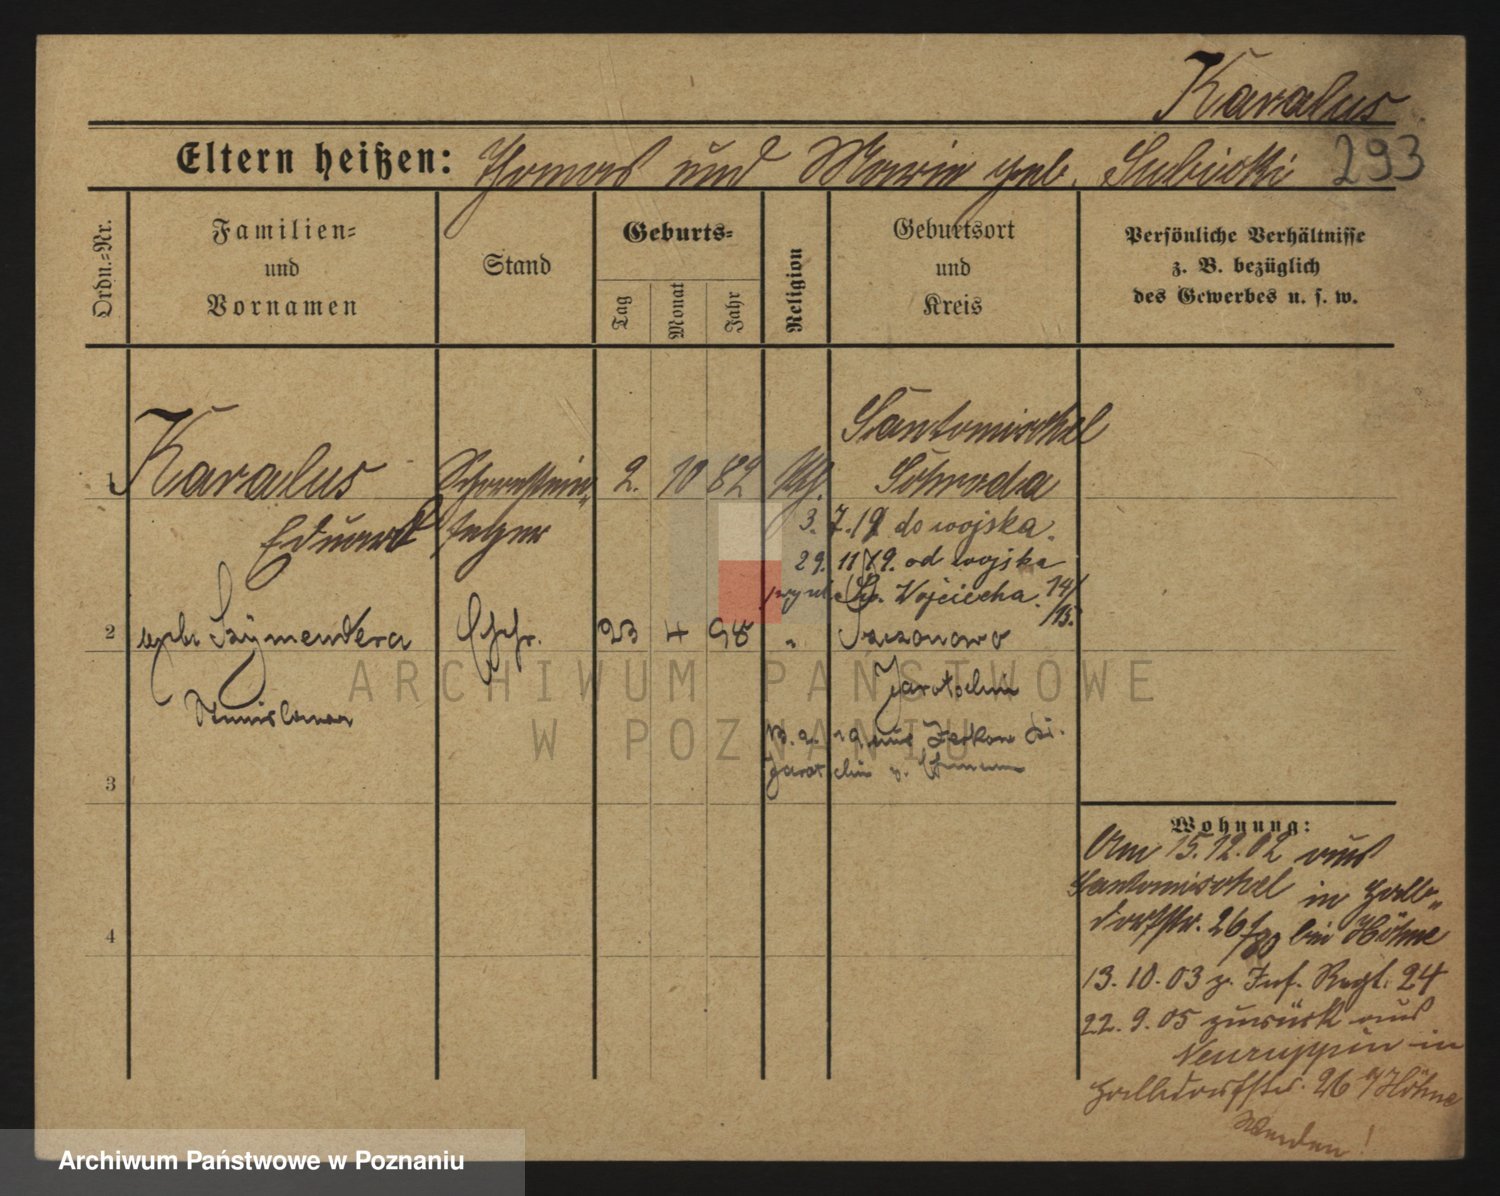 Karalus
Eltern heißen: Thomas und Marie geb. Subicki 293
Ordn.-Nr.
Familien-
und
Vornamen
Stand
Geburts-
Tag
Monat
Jahr
Religion
Geburtsort
und
Kreis
Persönliche Verhältnisse
z. B. bezüglich
des Gewerbes u. s. w.
1 Karalus
Eduard
Schornstein-
feger
2. 10 82 kth.
Santomischel
Schroda
3. 7. 19 do wojska.
29. 11 19. od wojska
Św. Wojciecha. 14/
15.
2 geb. Szymendera
Stanislawa
Ehefr.
23 4 98 "
Jaratschin
aus Zerkow
3
4
Wohnung:
Am 15.12.02 aus
Santomischel in Halb-
dorfstr. 26 bei Höhne
13. 10. 03 z. Inf. Regt. 24
22. 9. 05 zurück aus
Neuruppin in
Halbdorfstr. 26 Höhne
Wenden!
ARCHIWUM PAŃSTWOWE
W POZNANIU
Archiwum Państwowe w Poznaniu